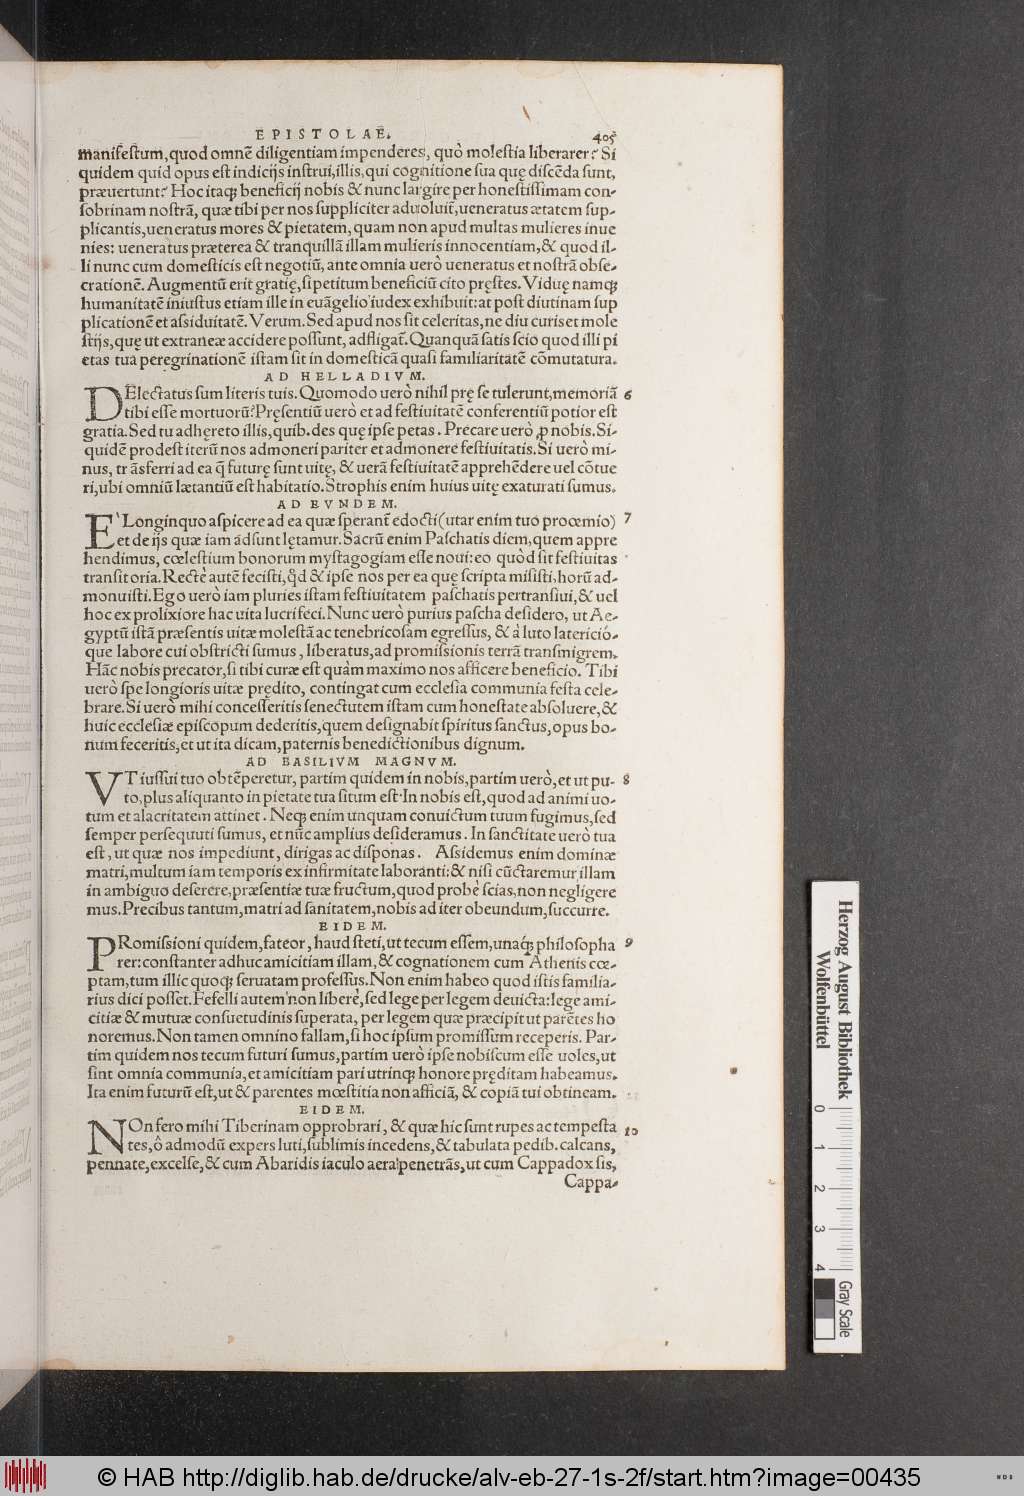 EPISTOLAE. 405
manifestum, quod omnē diligentiam impenderes, quò molestia liberarer? Si
quidem quid opus est indicijs instrui, illis, qui cognitione sua quę discēda sunt,
præuertunt? Hoc itaq; beneficij nobis & nunc largire per honestissimam con-
sobrinam nostrā, quæ tibi per nos suppliciter aduoluit̄, ueneratus ætatem sup-
plicantis, ueneratus mores & pietatem, quam non apud multas mulieres inue
nies: ueneratus præterea & tranquillā illam mulieris innocentiam, & quod il-
li nunc cum domesticis est negotiū, ante omnia uerò ueneratus et nostrā obse-
crationē. Augmentū erit gratię, si petitum beneficiū cito pręstes. Viduę namq;
humanitatē iniustus etiam ille in euāgelio iudex exhibuit: at post diutinam sup
plicationē et assiduitatē. Verum. Sed apud nos sit celeritas, ne diu curis et mole
stijs, quę ut extraneæ accidere possunt, adfligat̄. Quanquā satis scio quod illi pi
etas tua peregrinationē istam sit in domesticā quasi familiaritatē cōmutatura.
AD HELLADIVM.
DElectatus sum literis tuis. Quomodo uerò nihil prę se tulerunt, memoriā 6
tibi esse mortuorū? Pręsentiū uerò et ad festiuitatē conferentiū potior est
gratia. Sed tu adhęreto illis, quib. des quę ipse petas. Precare uerò ꝓ nobis. Si-
quidē prodest iterū nos admoneri pariter et admonere festiuitatis. Si uerò mi-
nus, trāsferri ad ea q̄ futurę sunt uitę, & uerā festiuitatē apprehēdere uel cōtue
ri, ubi omniū lætantiū est habitatio. Strophis enim huius uitę exaturati sumus.
AD EVNDEM.
E' Longinquo aspicere ad ea quæ sperant̄ edocti (utar enim tuo proœmio) 7
et de ijs quæ iam adsunt lętamur. Sacrū enim Paschatis diem, quem appre
hendimus, cœlestium bonorum mystagogiam esse noui: eo quòd sit festiuitas
transitoria. Rectè autē fecisti, q̊d & ipse nos per ea quę scripta misisti, horū ad-
monuisti. Ego uerò iam pluries istam festiuitatem paschatis pertransiui, & uel
hoc ex prolixiore hac uita lucrifeci. Nunc uerò purius pascha desidero, ut Ae-
gyptū istā præsentis uitæ molestā ac tenebricosam egressus, & à luto laterició-
que labore cui obstricti sumus, liberatus, ad promissionis terrā transmigrem.
Hāc nobis precator, si tibi curæ est quàm maximo nos afficere beneficio. Tibi
uerò spe longioris uitæ prędito, contingat cum ecclesia communia festa cele-
brare. Si uerò mihi concesseritis senectutem istam cum honestate absoluere, &
huic ecclesiæ episcopum dederitis, quem designabit spiritus sanctus, opus bo-
num feceritis, et ut ita dicam, paternis benedictionibus dignum.
AD BASILIVM MAGNVM.
VT iussui tuo obtēperetur, partim quidem in nobis, partim uerò, et ut pu- 8
to, plus aliquanto in pietate tua situm est. In nobis est, quod ad animi uo-
tum et alacritatem attinet. Neq; enim unquam conuictum tuum fugimus, sed
semper persequuti sumus, et nūc amplius desideramus. In sanctitate uerò tua
est, ut quæ nos impediunt, dirigas ac disponas. Assidemus enim dominæ
matri, multum iam temporis ex infirmitate laboranti: & nisi cūctaremur illam
in ambiguo deserere, præsentiæ tuæ fructum, quod probè scias, non negligere
mus. Precibus tantum, matri ad sanitatem, nobis ad iter obeundum, succurre.
EIDEM.
PRomissioni quidem, fateor, haud steti, ut tecum essem, unaq́; philosopha 9
rer: constanter adhuc amicitiam illam, & cognationem cum Athenis cœ-
ptam, tum illic quoq; seruatam professus. Non enim habeo quod istis familia-
rius dici posset. Fefelli autem non liberè, sed lege per legem deuicta: lege ami-
citiæ & mutuæ consuetudinis superata, per legem quæ præcipit ut parētes ho
noremus. Non tamen omnino fallam, si hoc ipsum promissum receperis. Par-
tim quidem nos tecum futuri sumus, partim uerò ipse nobiscum esse uoles, ut
sint omnia communia, et amicitiam pari utrinq; honore pręditam habeamus.
Ita enim futurū est, ut & parentes mœstitia non afficiā, & copiā tui obtineam.
EIDEM.
NOn fero mihi Tiberinam opprobrari, & quæ hic sunt rupes ac tempesta 10
tes, ô admodū expers luti, sublimis incedens, & tabulata pedib. calcans,
pennate, excelse, & cum Abaridis iaculo aera penetrās, ut cum Cappadox sis,
Cappa-
Herzog August Bibliothek
Wolfenbüttel
0 1 2 3 4
Gray Scale
© HAB http://diglib.hab.de/drucke/alv-eb-27-1s-2f/start.htm?image=00435